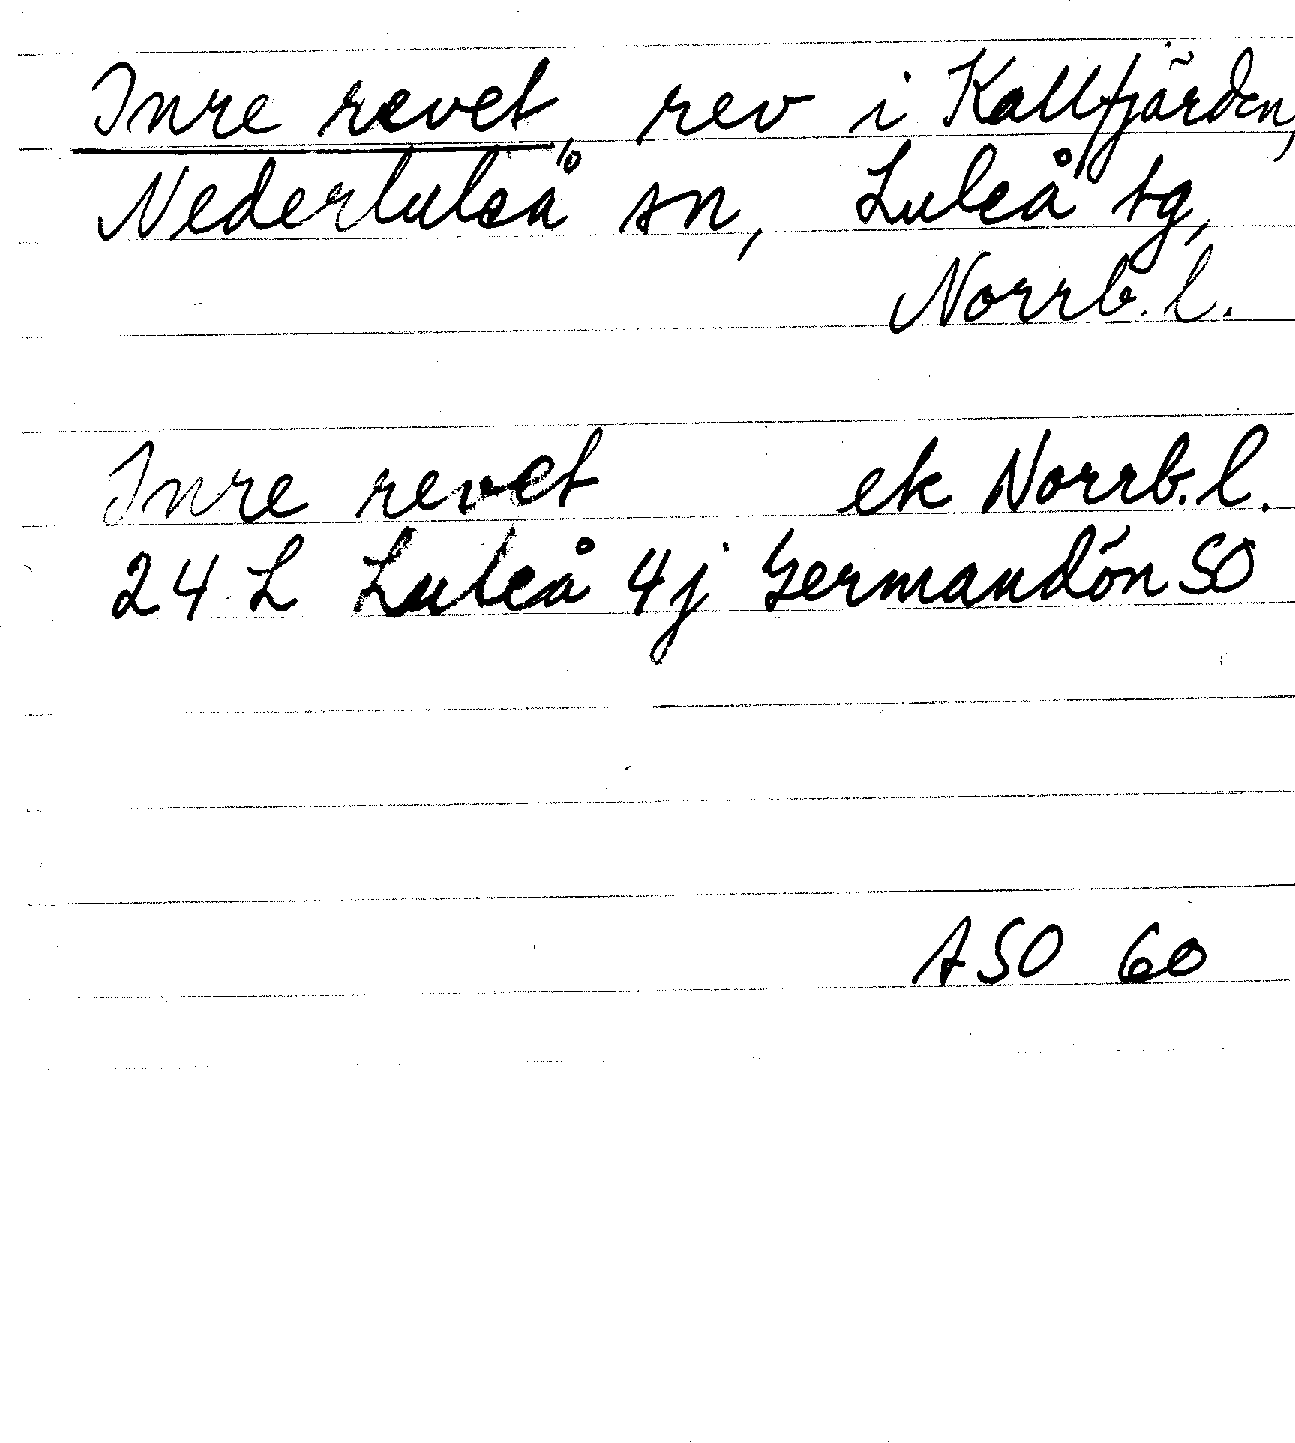 Inre revet, rev i Kallfjärden,
Nederluleå sn, Luleå sg,
Norrb. l.
Inre revet ek Norrb. l.
24 L Luleå 4j Germandön SO
ASO 60